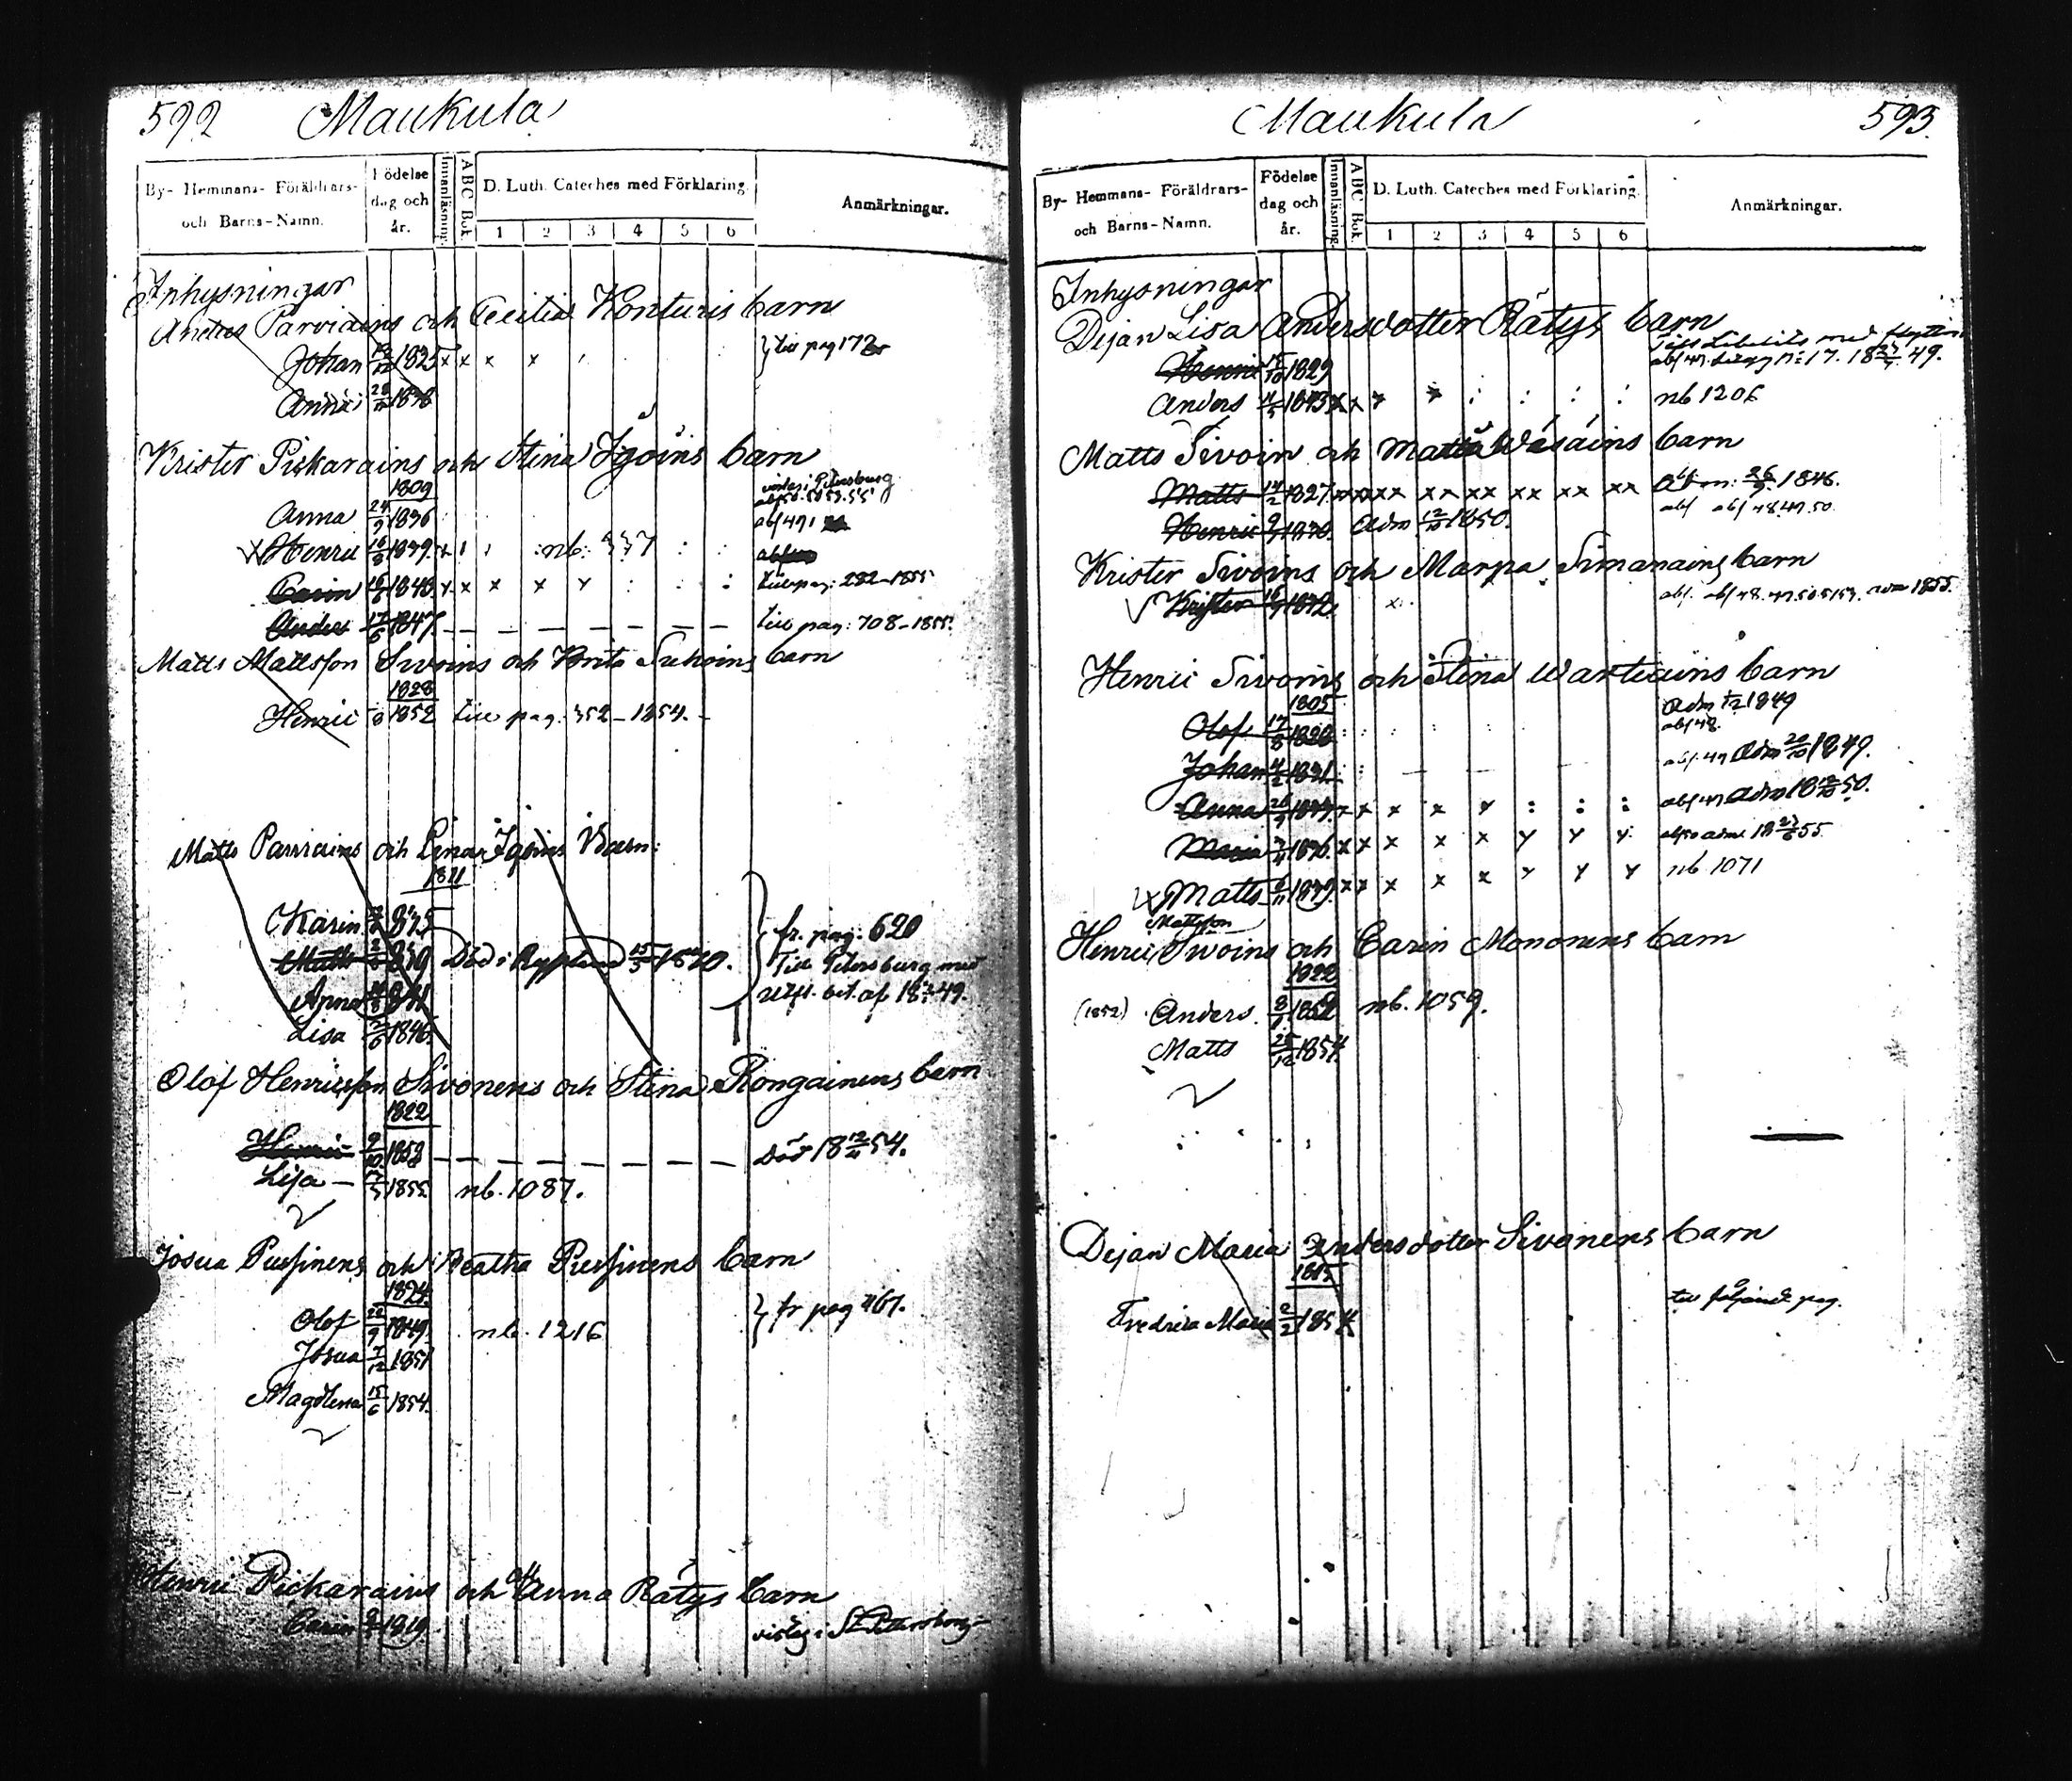 592 Maukula
By- Hemmans- Föräldrars- och Barns-Namn. Födelse dag och år. Innanläsning. ABC Bok. D. Luth. Cateches med Förklaring. 1 2 3 4 5 6 Anmärkningar.
Inhysningar
Anders Parviains och Cecilia Konturis barn
Johan 1825 x x x x till pag 172
Anna 28 1828
Krister Pickarains och Stina Igoins barn
1809
vistas i Petersburg
Anna 24/9 1836 abf 49
Henric 16/8 1839 nb: 337
Carin 16 1843 x x x x till pag: 282–1855
Anders 17/6 1847 — — — — — — till pag: 708–1855.
Matts Mattsson Sivoins och Brita Suhoins barn
1828
Henric 1852 till pag: 352–1854.
Matts Parviains och Lena Igoins Barn:
1811
Karin 835 fr. pag: 620
Matts 839 Död i Ryssland 15/5 1840. Till Petersburg med
Anna 841 utfl. bet. af 18 49.
Lisa 1846
Olof Henricsson Sivonens och Stina Rongainens barn
1822
Henric 9/10 1852 — — — — — — — död 18 12/4 54.
Lisa – 1855 nb. 1087.
Josua Pussinens och Beatha Pussinens barn
1824
Olof 22/9 1849 nb. 1216 fr pag 467.
Josua 7/12 1851
Magdlena 15/6 1854.
Henric Pickarains och Anna Rätys barn
Carin 1819 vistas i St Petersborg
Maukula 593.
By- Hemmans- Föräldrars- och Barns-Namn. Födelse dag och år. Innanläsning. ABC Bok. D. Luth. Cateches med Förklaring. 1 2 3 4 5 6 Anmärkningar.
Inhysningar
Dejan Lisa Andersdotter Rätys barn
Henric 15/10 1829 N: 17. 49.
Anders 14/5 1843 x x x x nb 1206
Matts Sivoin och Wäsäins barn
Matts 14/2 1827 xx xx xx xx xx xx Adm: 26/9 1846.
Henric 1830. Adm 12/10 1850. abf 48.49.50.
Krister Sivoins och Marpa Simanains barn
Krister 1832 abf 48.49.50.51.53. adm 1855.
Henric Sivoins och Stina Wartiains barn
1805 Adm 1849
Olof 17/8 1828 abf 48.
Johan 4/2 1831 abf 49 Adm 20/10 1849.
Anna 26/9 1833 x x x x x abf 49 Adm 18 12/10 50.
Maria 1836 x x x x x x x x adm. 18 55
Matts 6/11 1839 x x x x x x x x nb 1071
Mattsson
Henric Sivoins och Carin Mononens barn
1822
(1852) Anders 8/9 1852 nb. 1059.
Matts 25/12 1854
Dejan Maria Andersdotter Sivonens barn
1815
Fredrica Maria 2/2 1854 till följande pag.